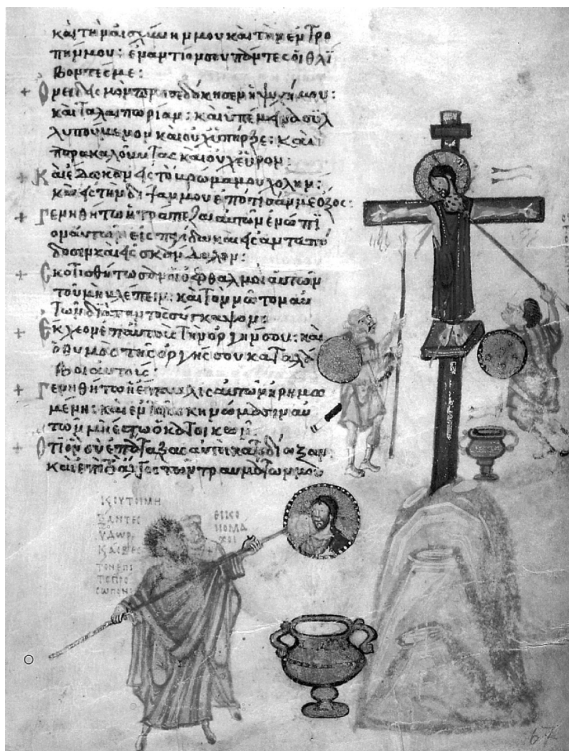 καὶ τὴν αἰσχύνην μου καὶ τὴν ἐντρο
πήν μου: ἐναντίον σου πάντες οἱ θλί
βοντές με:
+ Ὀνειδισμὸν προσεδόκησεν ἡ ψυχή μου:
καὶ ταλαιπωρίαν: καὶ ὑπέμεινα συλ
λυπούμενον καὶ οὐχ ὑπῆρξε: καὶ
παρακαλοῦντας καὶ οὐχ εὗρον:
+ Καὶ ἔδωκαν εἰς τὸ βρῶμά μου χολήν:
καὶ εἰς τὴν δίψαν μου ἐπότισάν με ὄξος:
+ Γενηθήτω ἡ τράπεζα αὐτῶν ἐνώπι
ον αὐτῶν εἰς παγίδα καὶ εἰς ἀνταπό
δοσιν καὶ εἰς σκάνδαλον:
+ Σκοτισθήτωσαν οἱ ὀφθαλμοὶ αὐτῶν
τοῦ μὴ βλέπειν: καὶ τὸν νῶτον αὐ
τῶν διὰ παντὸς σύγκαμψον:
+ Ἔκχεον ἐπ' αὐτοὺς τὴν ὀργήν σου: καὶ
ὁ θυμὸς τῆς ὀργῆς σου καταλά
βοι αὐτούς:
+ Γενηθήτω ἡ ἔπαυλις αὐτῶν ἠρημω
μένη: καὶ ἐν τοῖς σκηνώμασιν αὐ
τῶν μὴ ἔστω ὁ κατοικῶν:
+ Ὅτι ὃν σὺ ἐπάταξας αὐτοὶ κατεδίωξαν:
καὶ ἐπὶ τὸ ἄλγος τῶν τραυμάτων μου
ΕΙΚΟ
ΝΟΜΑ
ΧΟΙ
ΥΔΩΡ
67